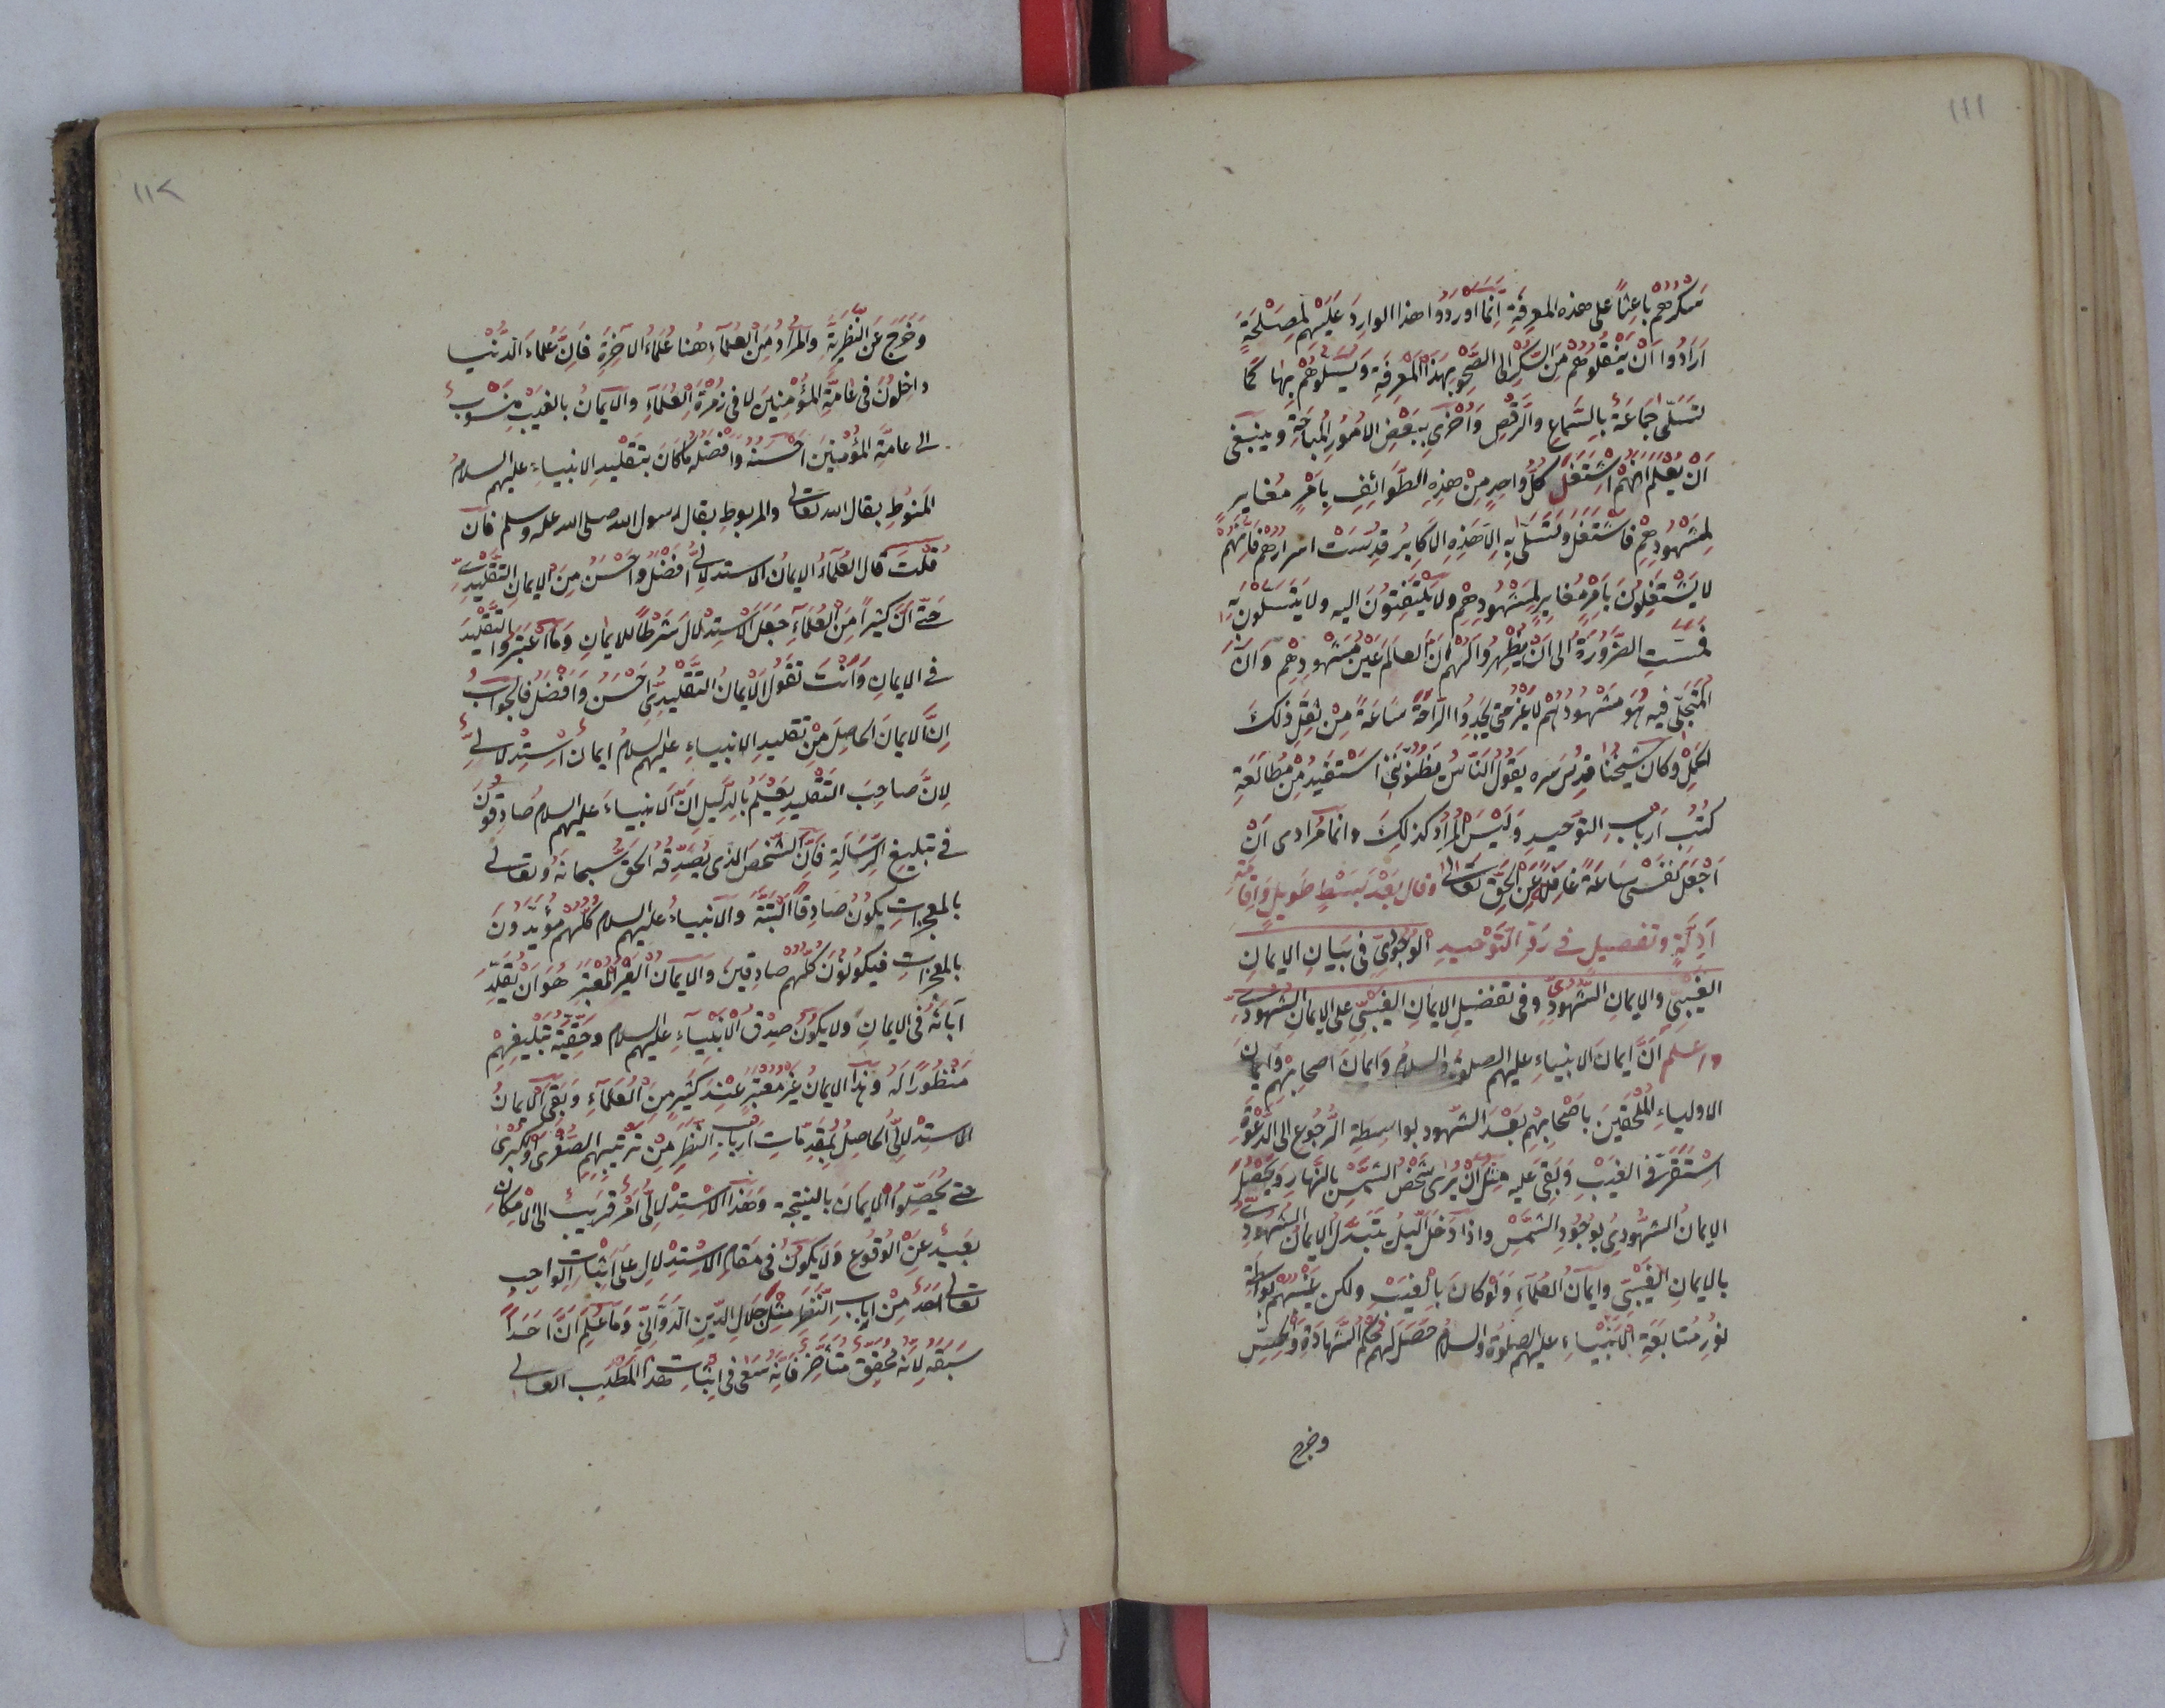 ١١١
سكرهم باعثا على هذه المعرفة انما اوردوا هذا الوارد عليهم لمصلحة
ارادوا ان ينقلوهم من السكر الى الصحو بهذا المعرفة ويسلوهم بها كما
تسلى جماعة بالسماع والرقص واخرى ببعض الامور المباحة وينبغى
ان يعلم انهم اشتغل كل واحد من هذه الطوائف بامر مغاير
لمشهودهم فاشتغل وتسلى به الا هذه الاكابر قدست اسرارهم فانهم
لا يشتغلون بامر مغاير لمشهودهم ولا يلتفتون اليه ولا يتسلون به
فمست الضرورة الى ان يظهروا لهم ان العالم عين مشهودهم وان
المتجلى فيه هو مشهودهم لا غير حتى يجدوا الراحة ساعة من ثقل ذلك
الحمل وكان شيخنا قدس سره يقول الناس يظنوننى استفيد من مطالعة
كتب ارباب التوحيد وليس المراد كذلك وانما مرادى ان
اجعل نفسى ساعة غافلا عن الحق تعالى وقال بعد بسط طويل واقامة
ادلة وتفصيل فى رد التوحيد الوجودى فى بيان الايمان
الغيبى والايمان الشهودى وفى تفضيل الايمان الغيبى على الايمان الشهودى
واعلم ان ايمان الانبياء عليهم الصلوة والسلام وايمان اصحابهم وايمان
الاولياء الملحقين باصحابهم بعد الشهود بواسطة الرجوع الى الدعوة
استقر فى الغيب وبقى عليه مثل ان يرى شخص الشمس بالنهار ويحصل
الايمان الشهودى بوجود الشمس واذا دخل الليل يتبدل الايمان الشهودى
بالايمان الغيبى وايمان العلماء ولو كان بالغيب ولكن بواسطة
نور متابعة الانبياء عليهم الصلوة والسلام حصل لهم حكم الشهادة والحس
وخرج
١١٢
وخرج عن النظرية والمراد من العلماء هنا علماء الآخرة فان علماء الدنيا
داخلون فى عامة المؤمنين لا فى زمرة العلماء والايمان بالغيب منسوب
الى عامة المؤمنين احسنه وافضله ما كان بتقليد الانبياء عليهم السلام
المنوط بقال الله تعالى والمربوط بقال رسول الله صلى الله عليه وسلم فان
قلت قال العلماء الايمان الاستدلالى افضل واحسن من الايمان التقليدى
حتى ان كثيرا من العلماء جعل الاستدلال شرطا للايمان وما اعتبروا التقليد
فى الايمان وانت تقول الايمان التقليدى احسن وافضل فالجواب
ان الايمان الحاصل من تقليد الانبياء عليهم السلام ايمان استدلالى
لان صاحب التقليد يعلم بالدليل ان الانبياء عليهم السلام صادقون
فى تبليغ الرسالة فان الشخص الذى يصدقه الحق سبحانه وتعالى
بالمعجزات يكون صادقا البتة والانبياء عليهم السلام كلهم مؤيدون
بالمعجزات فيكونون كلهم صادقين والايمان الغير المعتبر هو ان يقلد
آبائه فى الايمان ولا يكون صدق الانبياء عليهم السلام وحقية تبليغهم
منظورا له وهذا الايمان غير معتبر عند كثير من العلماء وبقى الايمان
الاستدلالى الحاصل بمقدمات ارباب النظر من ترتيبهم الصغرى والكبرى
حتى يحصلوا الايمان بالنتيجة وهذا الاستدلالى امر قريب الى الامكان
بعيد عن الوقوع ولا يكون فى مقام الاستدلال على اثبات الواجب
تعالى احد من ارباب النظر مثل جلال الدين الدوانى وما علم ان احدا
سبقه لانه محقق متاخر فانه سعى فى اثبات هذا المطلب العالى